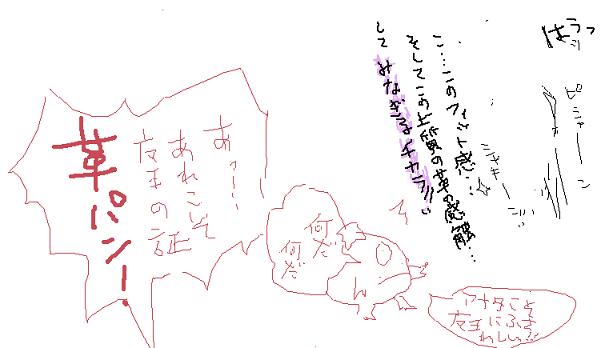 はうっ
ピシャーン
シャキーン
こ…このフィット感…
そしてこの上質の革の感触…
して みなぎるチカラ!!!
あっ…
あれこそ
女王の証
革パンー!
何だ
何だ
アナタこそ
女王にふさ
わしいっ!!